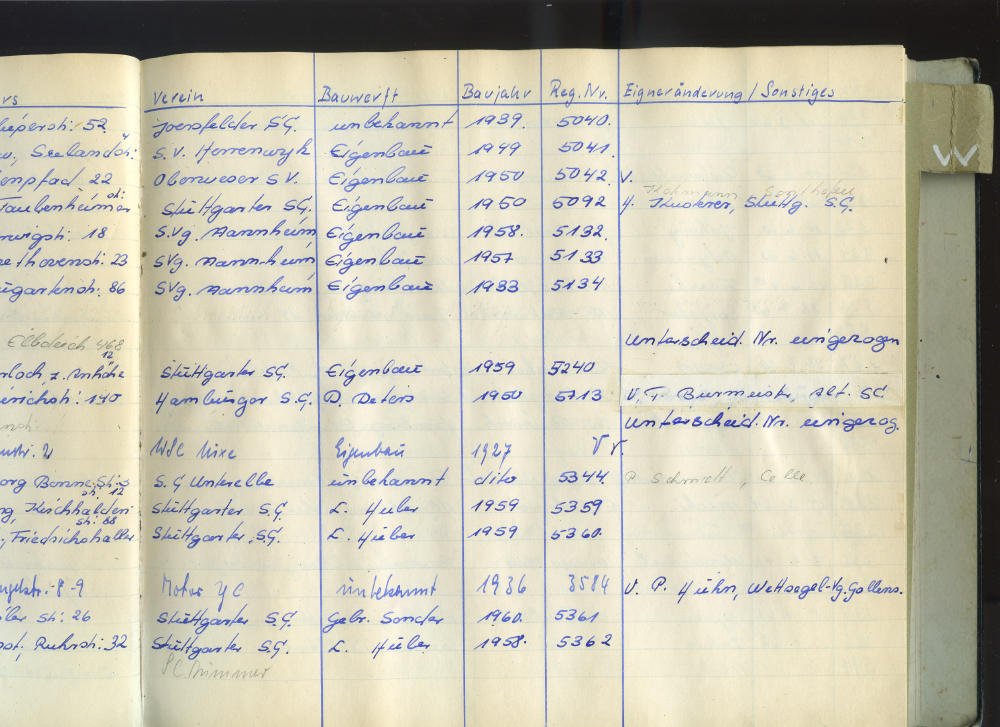 Verein Bauwerft Baujahr Reg.Nr. Eigneränderung / Sonstiges
str: 52 Joersfelder S.G. unbekannt 1939. 5040.
Seelandstr: S.V. Herrenwyk Eigenbau 1949 5041.
pfad 22 Oberweser S.V. Eigenbau 1950 5042. V.
str:
Taubenheimer Stuttgarter S.G. Eigenbau 1950 5092 Kusterer, Stuttg. S.G.
wigstr: 18 S.Vg. Mannheim Eigenbau 1958. 5132.
ethovenstr: 23 SVg. Mannheim Eigenbau 1957 5133
gartenstr: 86 SVg. Mannheim Eigenbau 1933 5134
Elbdeich 468 Unterscheid. Nr. eingezogen
12
z. Anhöhe Stuttgarter SG. Eigenbau 1959 5240
richstr: 140 Hamburger S.G. D. Peters 1950 5713 V, T. Burmeister, Alt. SC
Unterscheid. Nr. eingezog.
str. 2 WSC Nixe Eigenbau 1927
org Bonne-Str: 5 S.G Unterelbe unbekannt dito 5344. P Schmidt, Celle
str: 12
Kirchhalden Stuttgarter S.G. L. Huber 1959 5359
str: 88
Friedrichshaller Stuttgarter S.G. L. Huber 1959 5360.
str. 8-9 Motor YC unbekannt 1936 3584 V. P. Huhn, Wettsegel-Vg. Gallens.
ler Str: 26 Stuttgarter S.G. Gebr. Sonder 1960. 5361
Ruhrstr: 32 Stuttgarter S.G. L. Huber 1958. 5362
SC